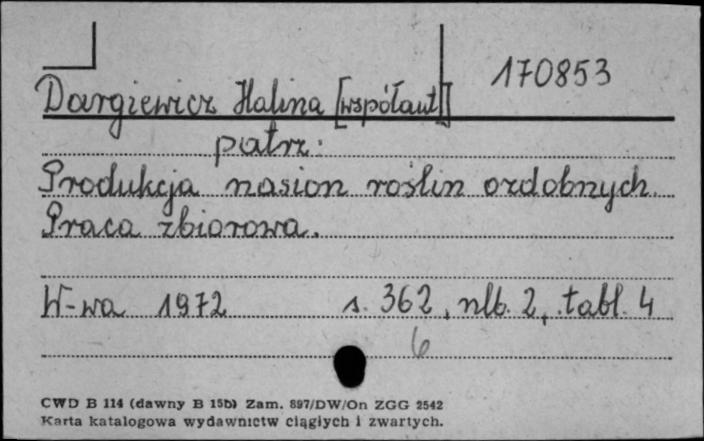 170853
Dargiewicz Halina [współaut]
patrz:
Produkcja nasion roślin ozdobnych.
Praca zbiorowa.
W-wa 1972 s. 362, nlb. 2, tabl. 4
6
CWD B 114 (dawny B 15b) Zam. 897/DW/On ZGG 2542
Karta katalogowa wydawnictw ciągłych i zwartych.